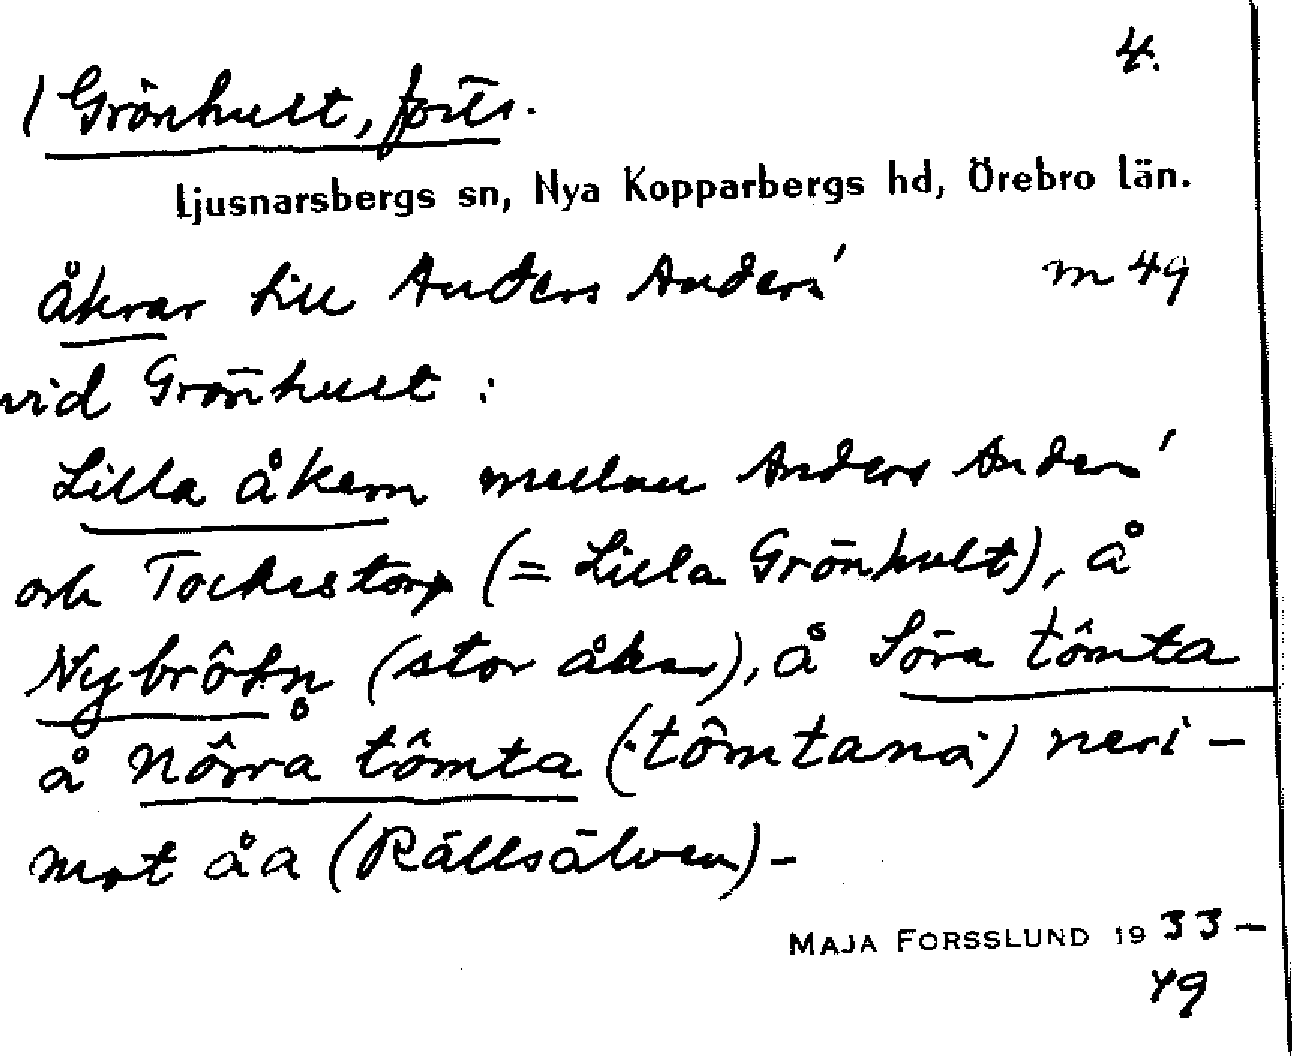 4.
(Grönhult, forts.
Ljusnarsbergs sn, Nya Kopparbergs hd, Örebro län.
Åkrar till Anders Anders' m 49
vid Grönhult :
Lilla åkern mellan Anders Anders'
och Tockestorp (= Lilla Grönhult), å
Nybrôtn (stor åker), å Söra tômta
å nôrra tômta (: tômtana) neri -
mot åa (Rällsälven) -
MAJA FORSSLUND 1933 -
49